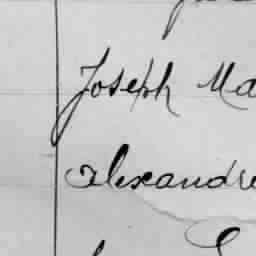 Joseph Ma
Alexandre